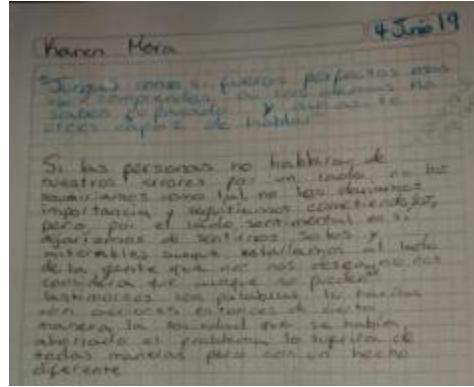 Karen Mora
4 Junio 19
"Juzgas como si fueras perfectas mas
no comprendes a los demas no
sabes su pasado y aun asi te
crees capaz de hablar"
Si las personas no hablaran de
nuestros errores por un lado no los
como tal no les
importancia y seguiriamos cometiendolos,
pero por el lado sentimental en si
dejariamos de sentirnos solos y
miserables aunque estariamos al lado
de la gente que no nos desea, no nos
considera que aunque no pueden
lastimarnos con palabras lo harian
con acciones entonces de cierta
manera la sociedad que se habia
ahorrado el problema lo de
todas maneras pero con un hecho
diferente